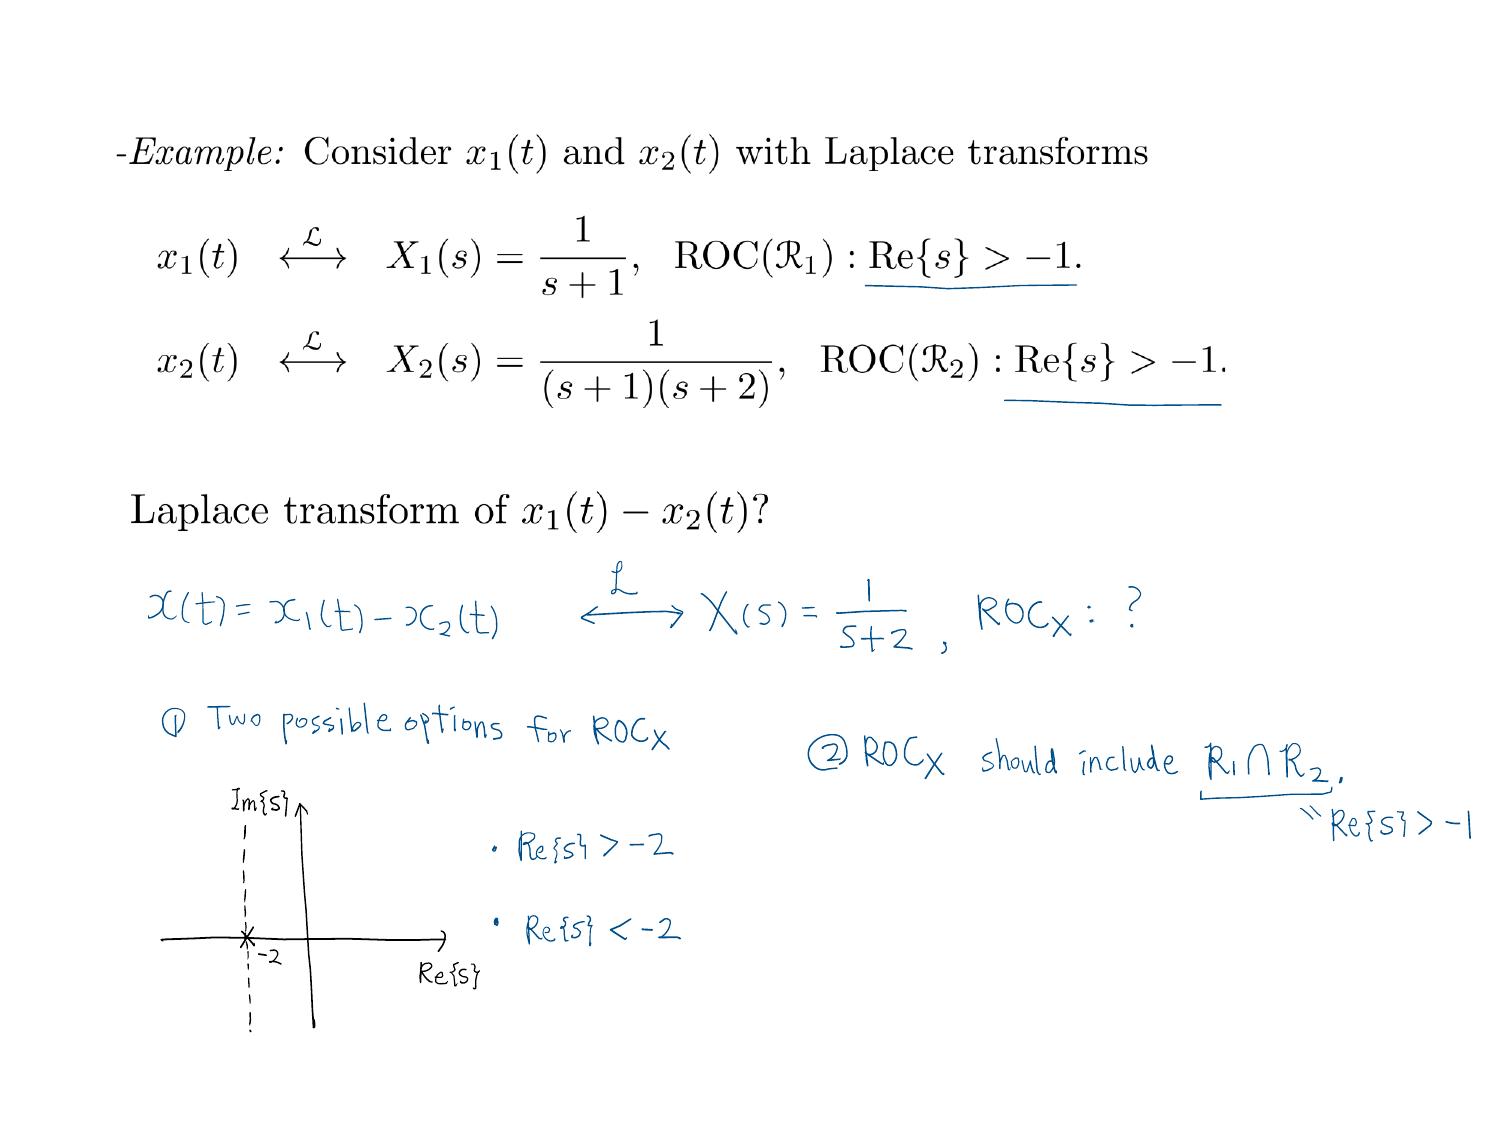 -Example: Consider x₁(t) and x₂(t) with Laplace transforms
x₁(t) ⟷^ℒ X₁(s) = 1/(s + 1), ROC(ℛ₁) : Re{s} > −1.
x₂(t) ⟷^ℒ X₂(s) = 1/((s + 1)(s + 2)), ROC(ℛ₂) : Re{s} > −1.
Laplace transform of x₁(t) − x₂(t)?
x(t) = x₁(t) − x₂(t) ⟷^ℒ X(s) = 1/(s+2), ROCₓ : ?
① Two possible options for ROCₓ
② ROCₓ should include R₁ ∩ R₂.
〃 Re{s} > −1
Im{s}
· Re{s} > −2
· Re{s} < −2
-2
Re{s}